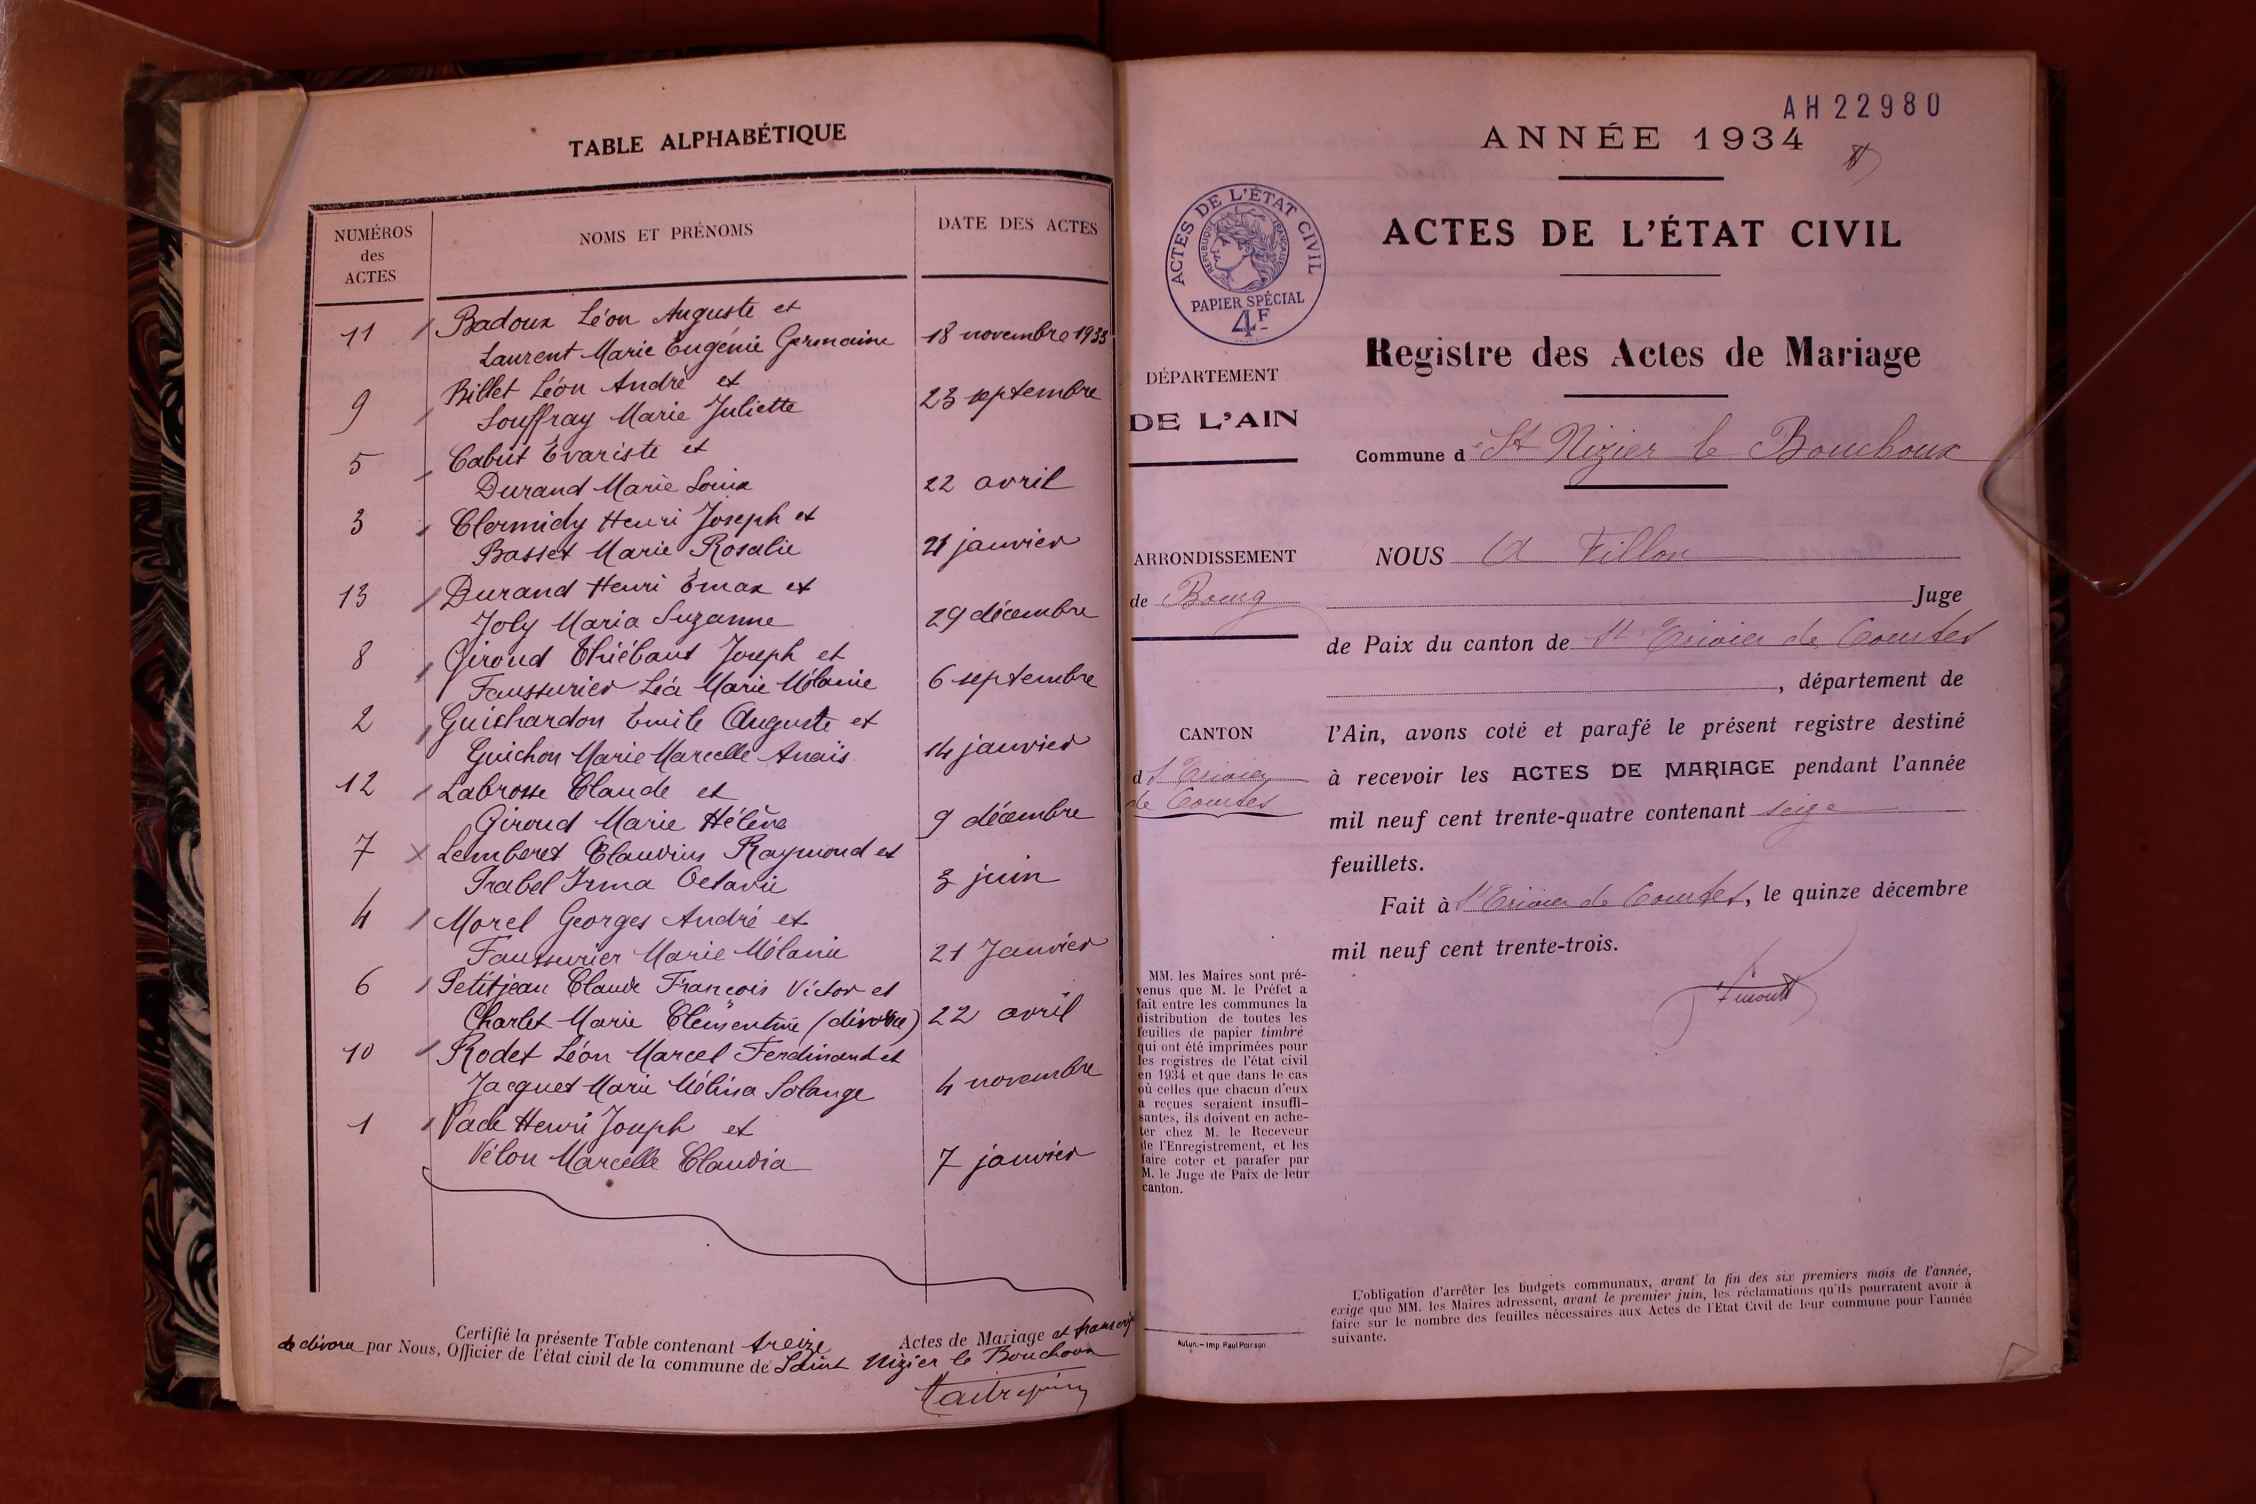 TABLE ALPHABÉTIQUE
NUMÉROS
des
ACTES
NOMS ET PRÉNOMS
DATE DES ACTES
11 Badoux Léon Auguste et
Laurent Marie Eugénie Germaine 18 novembre 1933
9 Billet Léon André et
Souffray Marie Juliette 23 septembre
5 Cabut Évariste et
Durand Marie Louise 22 avril
3 Clermidy Henri Joseph et
Basset Marie Rosalie 21 janvier
13 Durand Henri et
Joly Maria Suzanne 29 décembre
8 Giroud Thiébaut Joseph et
Faussurier Léa Marie Mélanie 6 septembre
2 Guichardon Émile Auguste et
Guichon Marie Marcelle Anaïs 14 janvier
12 Labrosse Claude et
Giroud Marie Hélène 9 décembre
7 Lemberet Claudius Raymond et
Prabel Irma Octavie 3 juin
4 Morel Georges André et
Faussurier Marie Mélanie 21 Janvier
6 Petitjean Claude François Victor et
Charlet Marie Clémentine (divorce) 22 avril
10 Rodet Léon Marcel Ferdinand et
Jacquet Marie Mélina Solange 4 novembre
1 Vade Henri Joseph et
Vélon Marcelle Claudia 7 janvier
Certifié la présente Table contenant treize Actes de Mariage et
de divorce par Nous, Officier de l'état civil de la commune de Saint Nizier le Bouchoux
AH22980
ANNÉE 1934
ACTES DE L'ÉTAT CIVIL
RÉPUBLIQUE FRANÇAISE
PAPIER SPÉCIAL
4F
ACTES DE L'ÉTAT CIVIL
Registre des Actes de Mariage
DÉPARTEMENT
DE L'AIN
Commune de St Nizier le Bouchoux
ARRONDISSEMENT
de Bourg
CANTON
d St Trivier
de Courtes
NOUS A Villon
Juge
de Paix du canton de St Trivier de Courtes
, département de
l'Ain, avons coté et parafé le présent registre destiné
à recevoir les ACTES DE MARIAGE pendant l'année
mil neuf cent trente-quatre contenant seize
feuillets.
Fait à St Trivier de Courtes, le quinze décembre
mil neuf cent trente-trois.
MM. les Maires sont pré-
venus que M. le Préfet a
fait entre les communes la
distribution de toutes les
feuilles de papier timbré
qui ont été imprimées pour
les registres de l'état civil
en 1934 et que dans le cas
où celles que chacun d'eux
a reçues seraient insuffi-
santes, ils doivent en ache-
ter chez M. le Receveur
de l'Enregistrement, et les
faire coter et parafer par
M. le Juge de Paix de leur
canton.
Autun.–Imp Paul Poirson
L'obligation d'arrêter les budgets communaux, avant la fin des six premiers mois de l'année,
exige que MM. les Maires adressent, avant le premier juin, les réclamations qu'ils pourraient avoir à
faire sur le nombre des feuilles nécessaires aux Actes de l'Etat Civil de leur commune pour l'année
suivante.